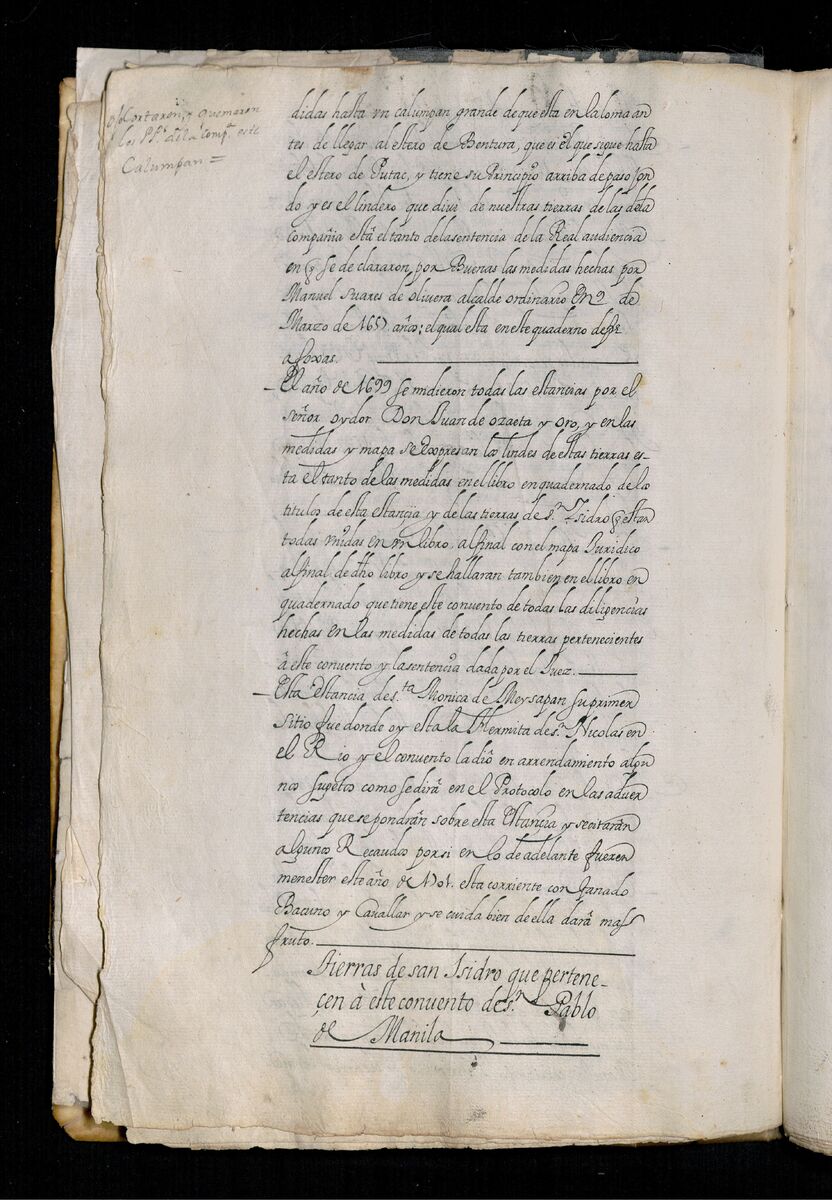 Cortaron, y quemaron
los PP.ˢ de la Comp.ᵃ este
Calumpan =
didas hasta vn calumpan grande de que esta en la loma an
tes de llegar al estero de Bentura, que es el que sigue hasta
el estero de Putac, y tiene su Principio arriba de paso fon
do y es el lindero que divi de nuestras tierras de las dela
compañia està el tanto dela sentencia de la Real audiencia
en q̃ se de clararon por Buenas las medidas hechas por
Manuel suares de olivera alcalde ordinario en 2 de
Marzo de 165 años; el qual esta en este quaderno
a foxas.
El año de 1699 se midieron todas las estancias por el
señor oydor Don Juan de ozaeta y oro, y en las
medidas y mapa se expresan los lindes de estas tierras es-
ta el tanto de las medidas en el libro en quadernado de los
titulos de esta estancia y de las tierras de s.ⁿ Isidro q̃ estan
todas vnidas en vn libro, al final con el mapa Juridico
al final de dho libro y se hallaran tambien en el libro en
quadernado que tiene este convento de todas las diligencias
hechas en las medidas de todas las tierras pertenecientes
à este convento y la sentencia dada por el Juez.
Esta estancia de s.ᵗᵃ Monica de Meysapan su primer
sitio fue donde oy esta la Hermita de s.ⁿ Nicolas en
el Rio y el convento la diò en arrendamiento algu
nos sugetos como se dirà en el Protocolo en las adver
tencias que se pondràn sobre esta Estancia y se citaràn
algunos Recaudos por si en lo de adelante fueren
menester este año de 1701. esta corriente con ganado
Bacuno y Cavallar y se cuida bien de ella darà mas
fruto.
Tierras de san Isidro que pertene-
çen à este convento de s.ⁿ Pablo
de Manila